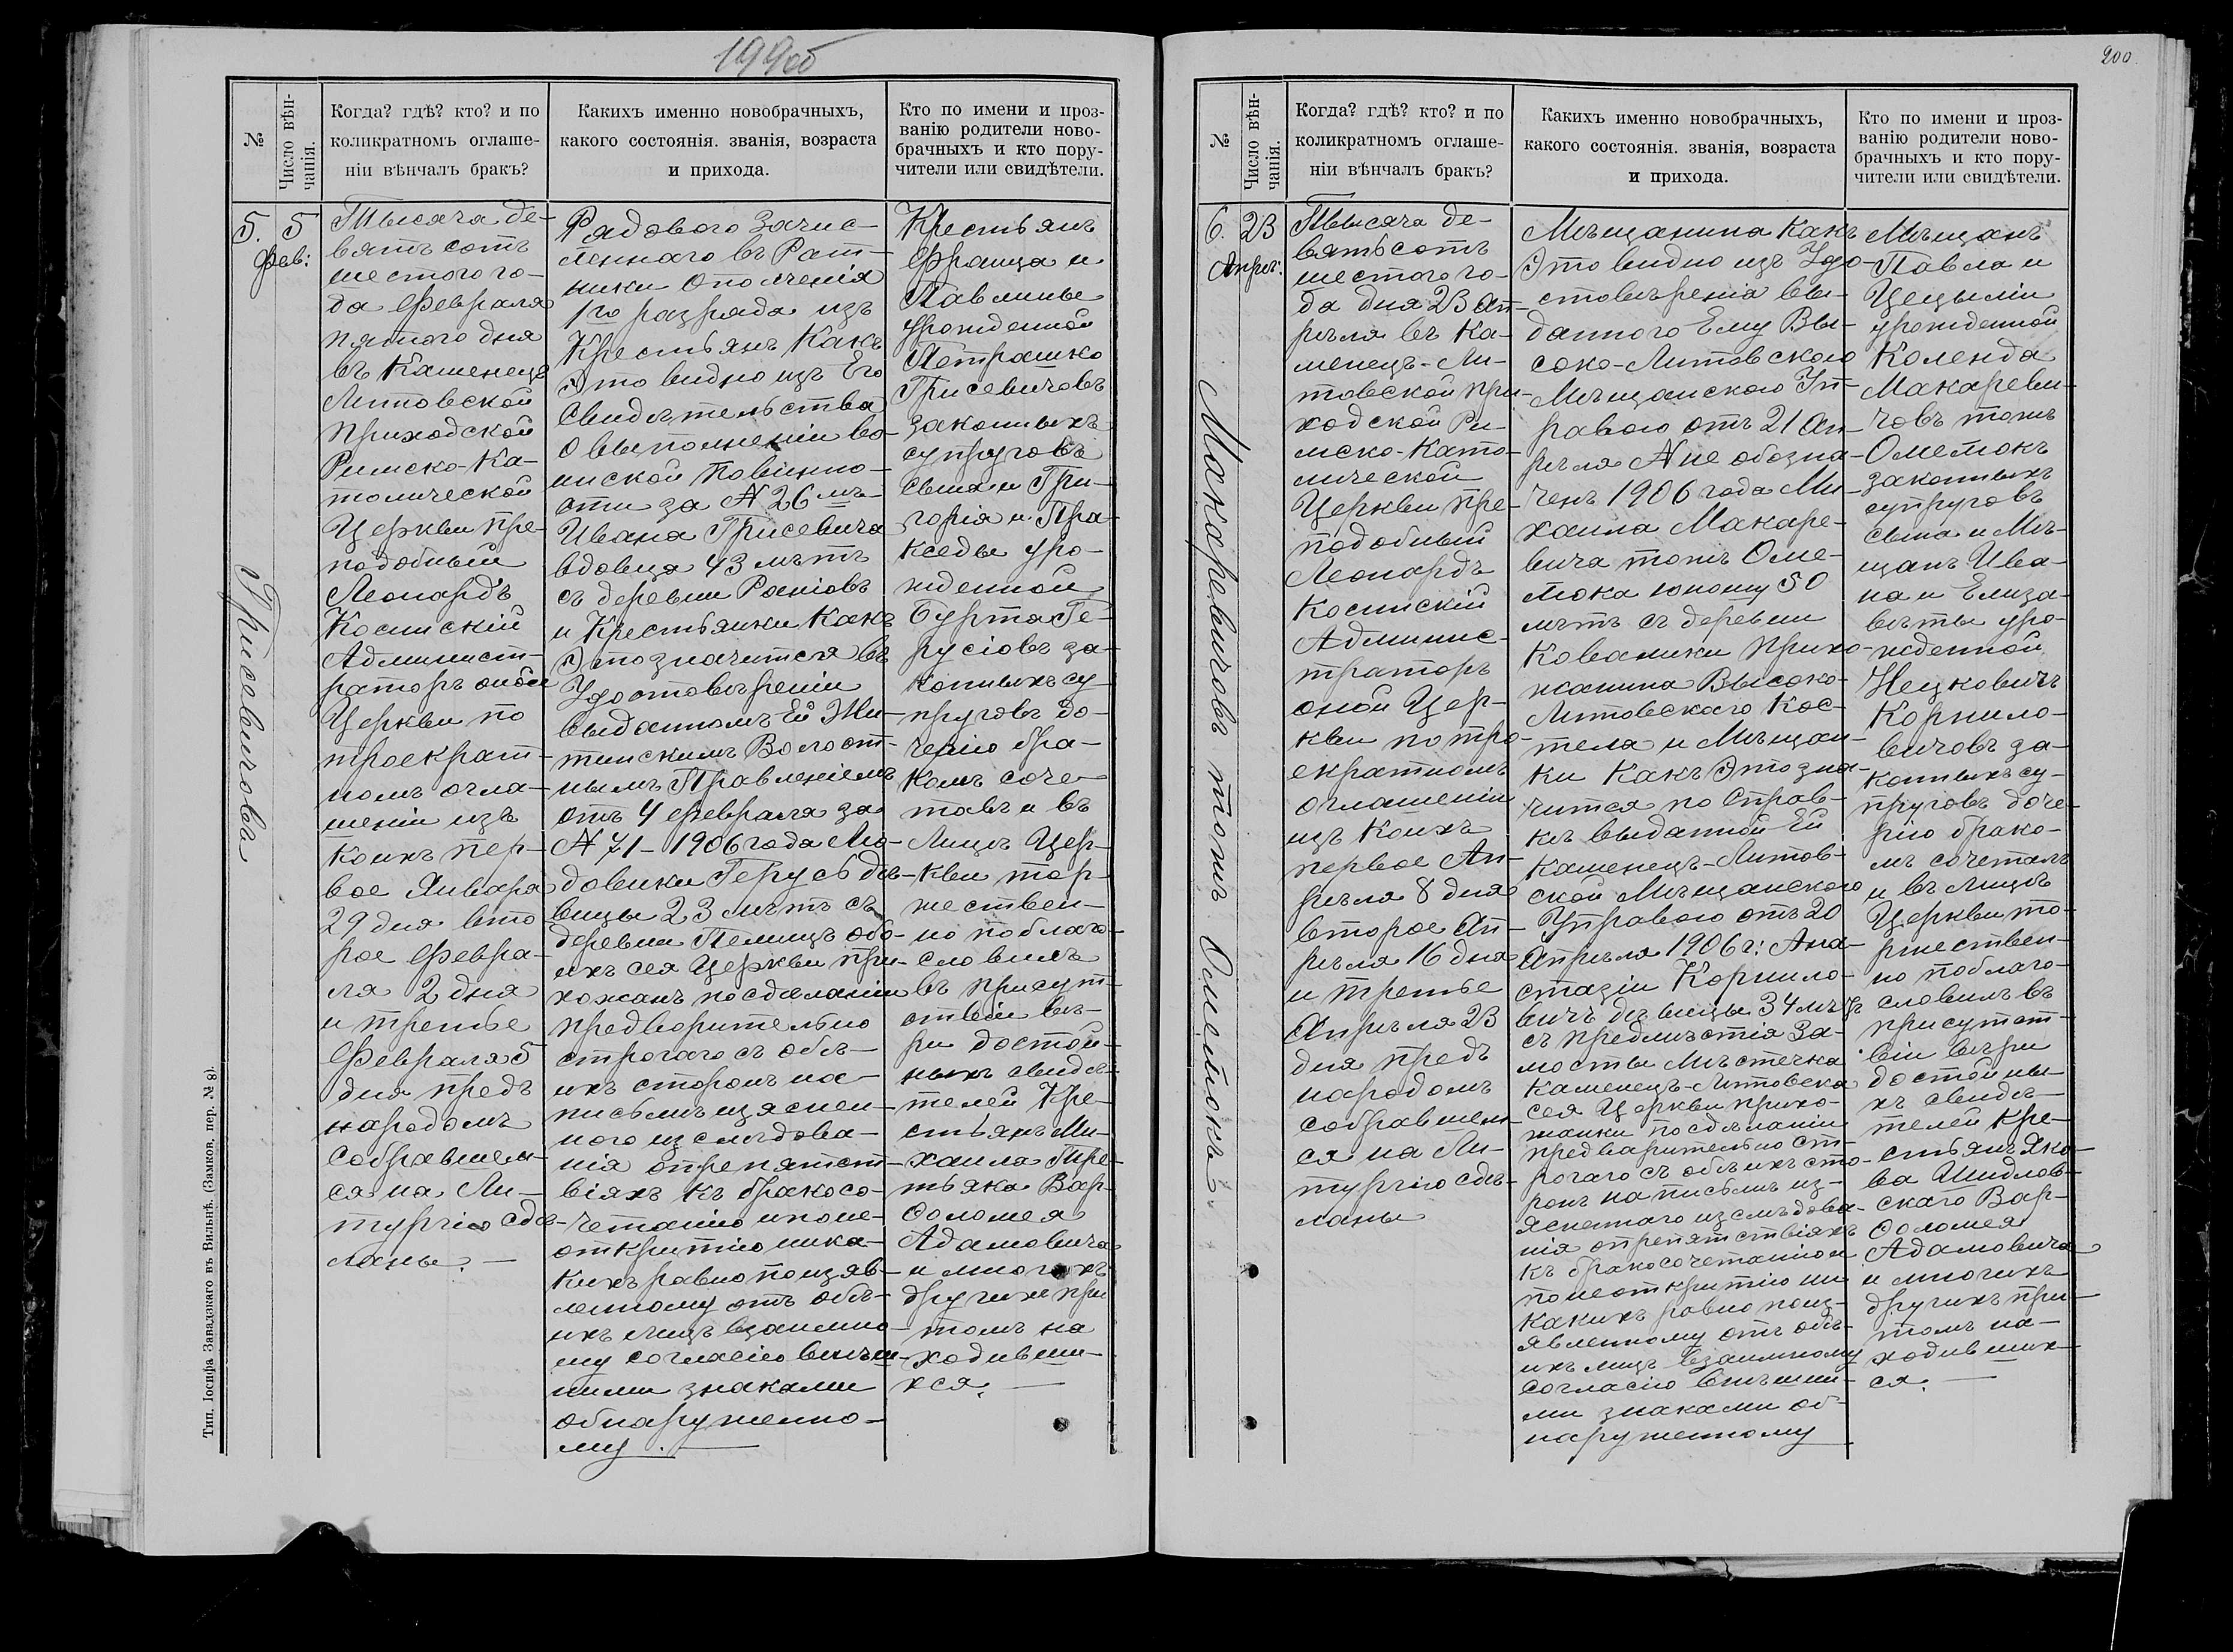 199об
№
Число вѣн-
чанія.
Когда? гдѣ? кто? и по
коликратномъ оглаше-
ніи вѣнчалъ бракъ?
Какихъ именно новобрачныхъ,
какого состоянія. званія, возраста
и прихода.
Кто по имени и проз-
ванію родители ново-
брачныхъ и кто пору-
чители или свидѣтели.
5.
5
Фев:
Грисевичовъ
Тысяча де-
вятъ сотъ
шестого го-
да Февраля
пятого дня
въ Каменецъ
Литовской
Приходской
Римско-Ка-
толической
Церкви пре-
подобный
Леонардъ
Косинскій
Админист-
раторъ оной
Церкви по
троекрат-
номъ огла-
шеніи изъ
коихъ пер-
вое Января
29 дня вто
рое Февра-
ля 2 дня
и третье
Февраля 5
дня предъ
народомъ
собравшем-
ся на Ли-
тургію сдѣ-
ланы. —
Рядового Зачис-
леннаго въ Рат-
ники Ополченія
1го разряда изъ
Крестьянъ Какъ
Это видно изъ Его
Свидѣтельства
О выполненіи во-
инской Повинно-
сти за N 26 мъ
Ивана Грисевича
вдовца 43 лѣтъ
съ деревни Рясновъ
и Крестьянки Какъ
Это значится въ
Удостовѣреніи
выданномъ Ей Жи-
тинскимъ Волост-
нымъ Правленіемъ
отъ 4 Февраля за
N 71 - 1906 года Лю-
довики Герусь дѣ-
вицы 23 лѣтъ съ
деревни Пелищъ обо-
ихъ сея Церкви при-
хожанъ по сдѣланіи
предворительно
строгаго съ обѣ-
ихъ сторонъ на
письмѣ изяснен-
ного изслѣдова-
нія опрепятст-
віяхъ къ бракосо-
четанію и по не-
открытію ника-
кихъ равно по изяв-
ленному отъ обѣ-
ихъ лицъ взаимно-
му согласію внѣш-
ними знаками
обнаруженно-
му. —
Крестьянъ
Франца и
Павлины
урожденной
Петрашко
Грисевичовъ
законныхъ
супруговъ
сына и Гри-
горія и Пра-
кседы уро-
жденной
Бурта Ге-
русіовъ за-
конныхъ су-
пруговъ до-
черію бра-
комъ соче-
талъ и въ
Лицѣ Цер-
кви тор-
жествен-
но поблаго-
словилъ
въ присут-
ствіи вѣ-
ры достой-
ныхъ свидѣ-
телей Кре-
стьянъ Ми-
хаила Тре-
тьяка Вар-
Ѳоломея
Адамовича
и многихъ
другихъ при
томъ на
ходивши-
хся. —
Тип. Іосифа Завадзкаго въ Вильнѣ. (Замков. пер. № 8).
200
№
Число вѣн-
чанія.
Когда? гдѣ? кто? и по
коликратномъ оглаше-
ніи вѣнчалъ бракъ?
Какихъ именно новобрачныхъ,
какого состоянія. званія, возраста
и прихода.
Кто по имени и проз-
ванію родители ново-
брачныхъ и кто пору-
чители или свидѣтели.
6.
23
Апрѣл:
Макаревичовъ тожъ Ометюкъ.
Тысяча де-
вятьсотъ
шестого го-
да дня 23 Ап-
рѣля въ Ка-
менецъ-Ли-
товской при-
ходской Ри-
мско-Като-
лической
Церкви пре-
подобный
Леонардъ
Косинскій
Админис-
траторъ
оной Цер-
кви по тро-
екратномъ
оглашеніи
изъ коихъ
первое Ап-
рѣля 8 дня
второе Ап-
рѣля 16 дня
и третье
Апрѣля 23
дня предъ
народомъ
собравшем
ся на Ли-
тургію сдѣ-
ланы
Мѣщанина Какъ
Это видно изъ Удо-
стовѣренія вы-
данного Ему Вы-
соко-Литовскою
Мѣщанскою Уп-
равою отъ 21 Ап-
рѣля N не обозна-
ченъ 1906 года Ми-
хаила Макаре-
вича тожъ Оме-
тюка юношу 50
лѣтъ съ деревни
Кованики Прихо-
жанина Высоко-
Литовскаго Кос-
тела и Мѣщан-
ки Какъ Это зна-
чится по Справ-
кѣ выданной Ей
Каменецъ-Литов-
ской Мѣщанскою
Управою отъ 20
Апрѣля 1906 г: Ана-
стазіи Корнило-
вичъ дѣвицы 34 лѣтъ
съ предмѣстія За-
мосты Мѣстечка
Каменецъ-Литовска
сея Церкви прихо-
жанки по сдѣланіи
предварительно ст-
рогаго съ обѣихъ сто-
ронъ на письмѣ из-
ясненнаго изслѣдова-
нія опрепятствіяхъ
къ бракосочетанію и
по неоткрытію ни
какихъ равно по из-
явленному отъ обѣ-
ихъ лицъ взаимному
согласію внѣшни-
ми знаками об-
наруженному
Мѣщанъ
Павла и
Цецыліи
урожденной
Коленда
Макареви-
човъ тожъ
Ометюкъ
законныхъ
супруговъ
сына и Мѣ-
щанъ Ива-
на и Елиза-
веты уро-
жденной
Нецковичъ
Корнило-
вичовъ за-
конныхъ су-
пруговъ доче-
рію брако-
мъ сочеталъ
и въ Лицѣ
Церкви то-
ржествен-
но поблаго-
словилъ въ
присутст-
віи вѣры
достойны
хъ свидѣ-
телей Кре-
стьянъ Яко-
ва Шидлов-
скаго Вар-
Ѳоломея
Адамовича
и многихъ
другихъ при-
томъ на-
ходивших-
ся. —